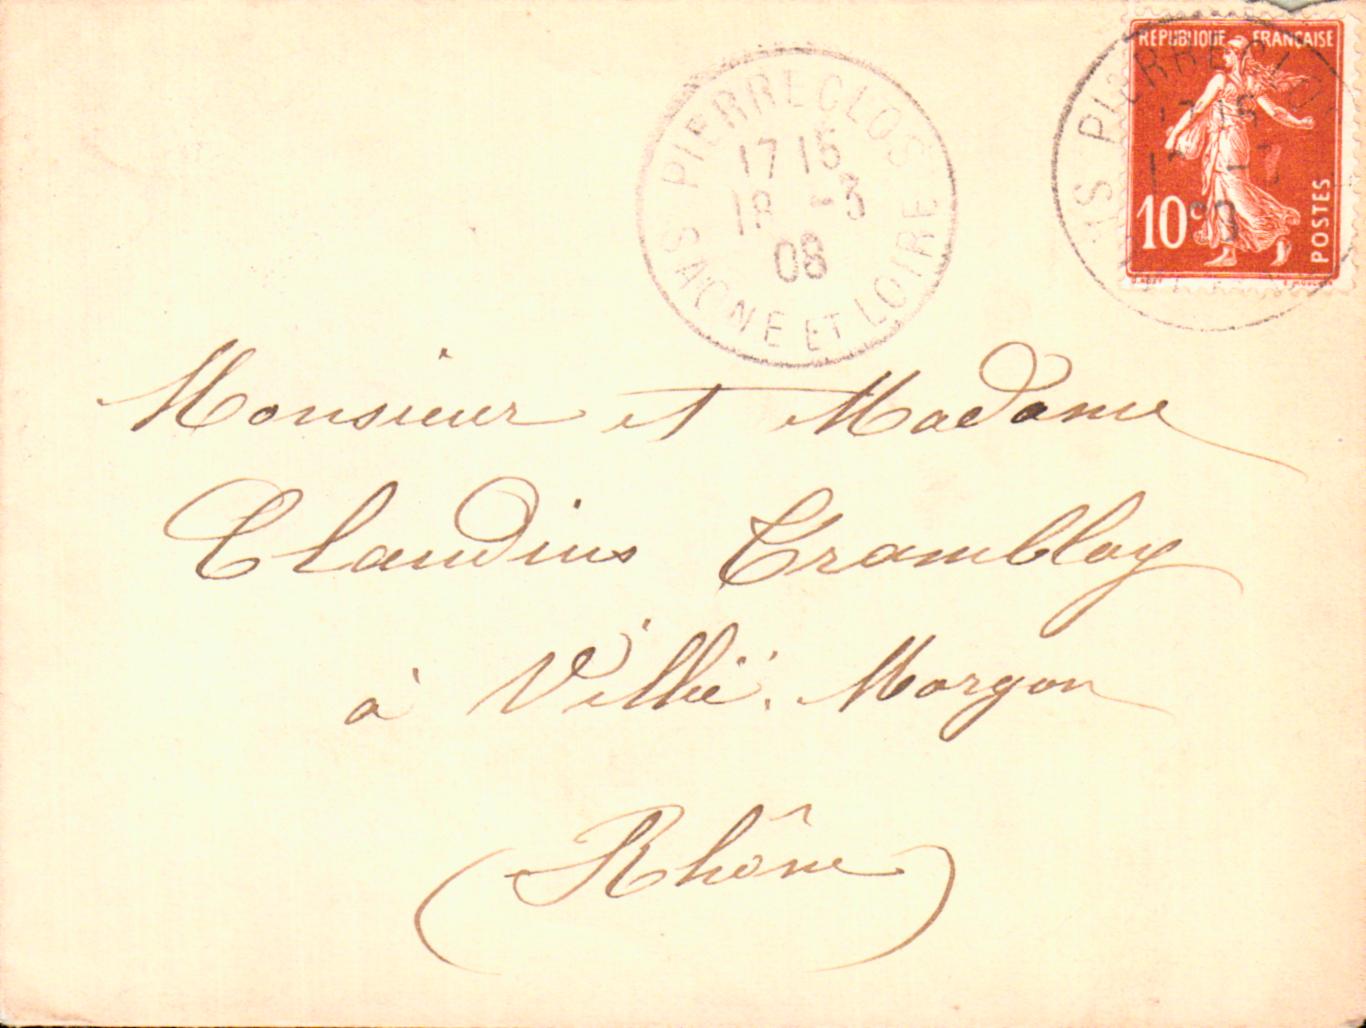 PIERRECLOS
17 15
18 -3
08
SAONE ET LOIRE
REPUBLIQUE FRANÇAISE
10c
POSTES
Monsieur et Madame
Claudius Tramblay
à Villié-Morgon
(Rhône)